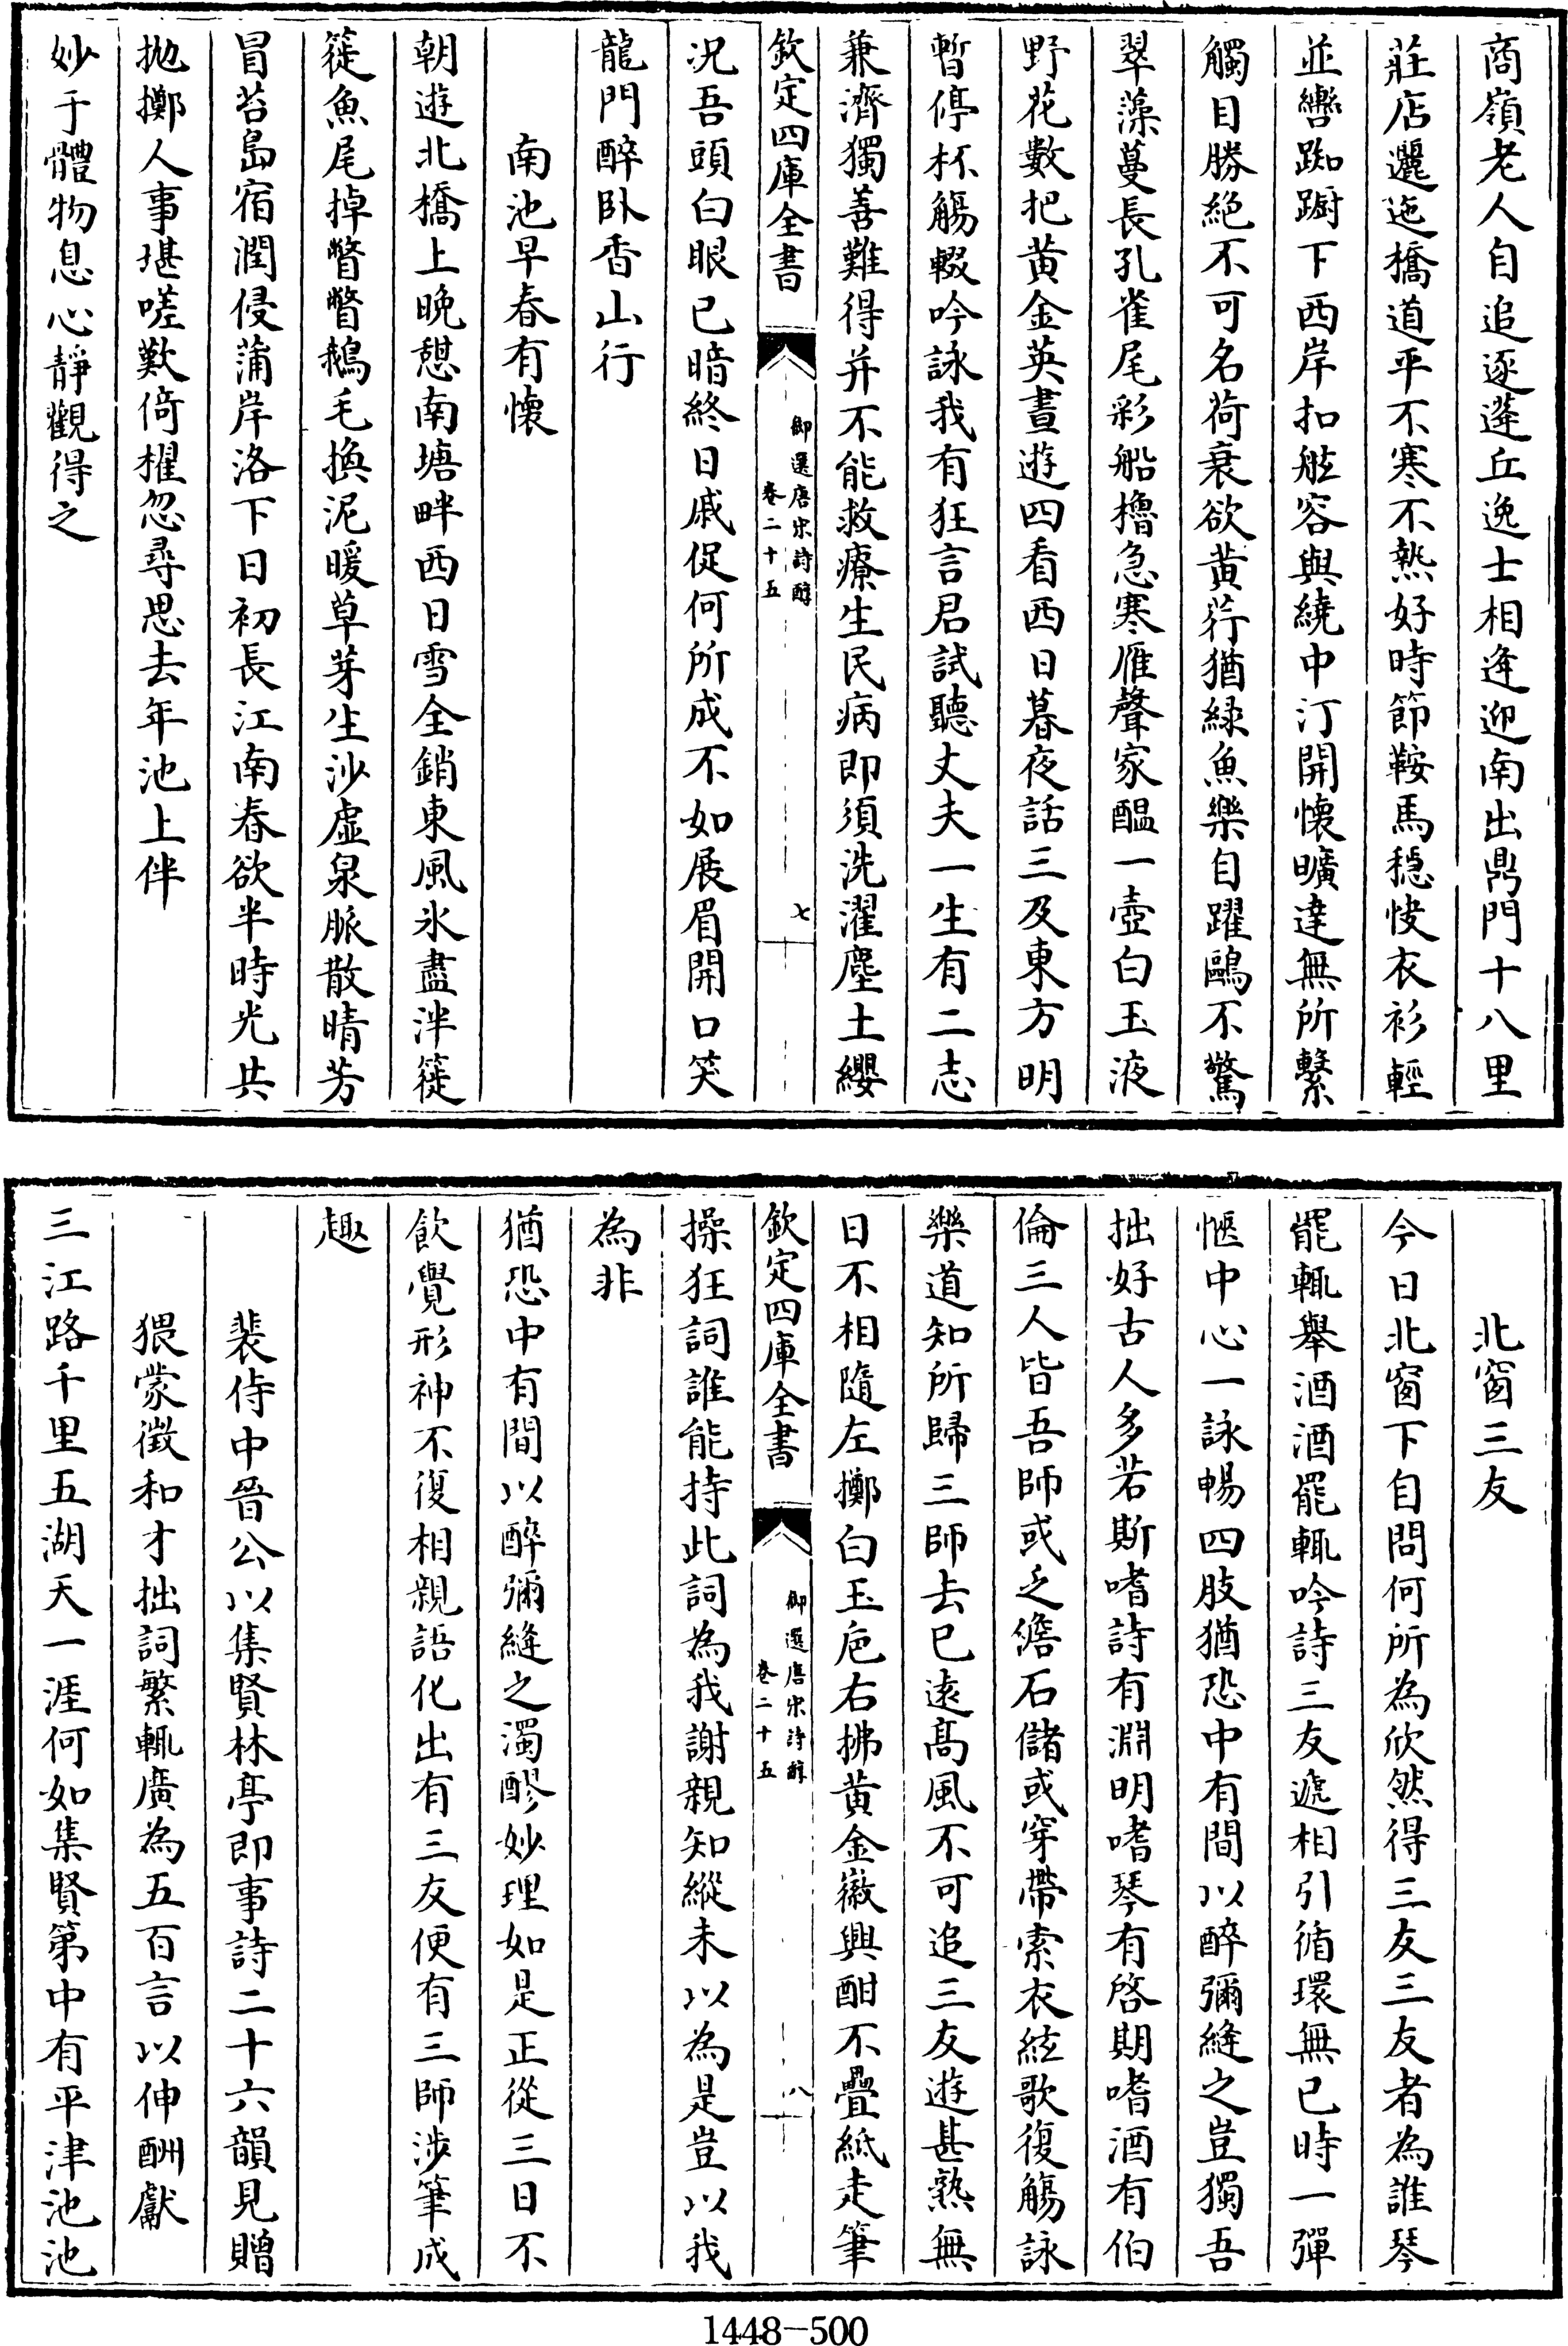 商嶺老人自追逐蓬丘逸士相逢迎南出鼎門十八里
莊店邐迤橋道平不寒不熱好時節鞍馬穩快衣衫輕
並轡踟蹰下西岸扣舷容與繞中汀開懷曠達無所繫
觸目勝絶不可名荷衰欲黃荇猶緑魚樂自躍鷗不驚
翠藻蔓長孔雀尾彩船櫓急寒雁聲家醖一壺白玉液
野花數把黃金英晝遊四看西日暮夜話三及東方明
暫停杯觴輟吟詠我有狂言君試聽丈夫一生有二志
兼濟獨善難得并不能救療生民病即須洗濯塵土纓
欽定四庫全書
御選唐宋詩醇
卷二十五
七
況吾頭白眼已暗終日戚促何所成不如展眉開口笑
龍門醉卧香山行
南池早春有懷
朝遊北橋上晚憇南塘畔西日雪全銷東風氷盡泮簁
簁魚尾掉瞥瞥鵝毛換泥暖草芽生沙虛泉脈散晴芳
冒苔島宿潤侵蒲岸洛下日初長江南春欲半時光共
抛擲人事堪嗟歎倚櫂忽尋思去年池上伴
妙于體物息心靜觀得之
北窗三友
今日北窗下自問何所為欣然得三友三友者為誰琴
罷輒舉酒酒罷輒吟詩三友遞相引循環無已時一彈
愜中心一詠暢四肢猶恐中有間以醉彌縫之豈獨吾
拙好古人多若斯嗜詩有淵明嗜琴有啓期嗜酒有伯
倫三人皆吾師或乏儋石儲或穿帶索衣絃歌復觴詠
樂道知所歸三師去已遠高風不可追三友遊甚熟無
日不相隨左擲白玉巵右拂黃金徽興酣不疊紙走筆
欽定四庫全書
御選唐宋詩醇
卷二十五
八
操狂詞誰能持此詞為我謝親知縱未以為是豈以我
為非
猶恐中有間以醉彌縫之濁醪妙理如是正從三日不
飲覺形神不復相親語化出有三友便有三師涉筆成
趣
裴侍中晉公以集賢林亭即事詩二十六韻見贈
猥蒙徵和才拙詞繁輒廣為五百言以伸酬獻
三江路千里五湖天一涯何如集賢第中有平津池池
1448-500